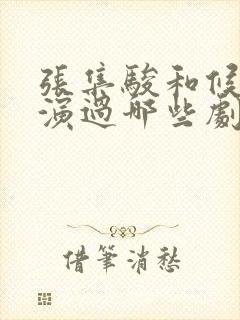 張集駿和候
演過哪些劇
借筆消愁